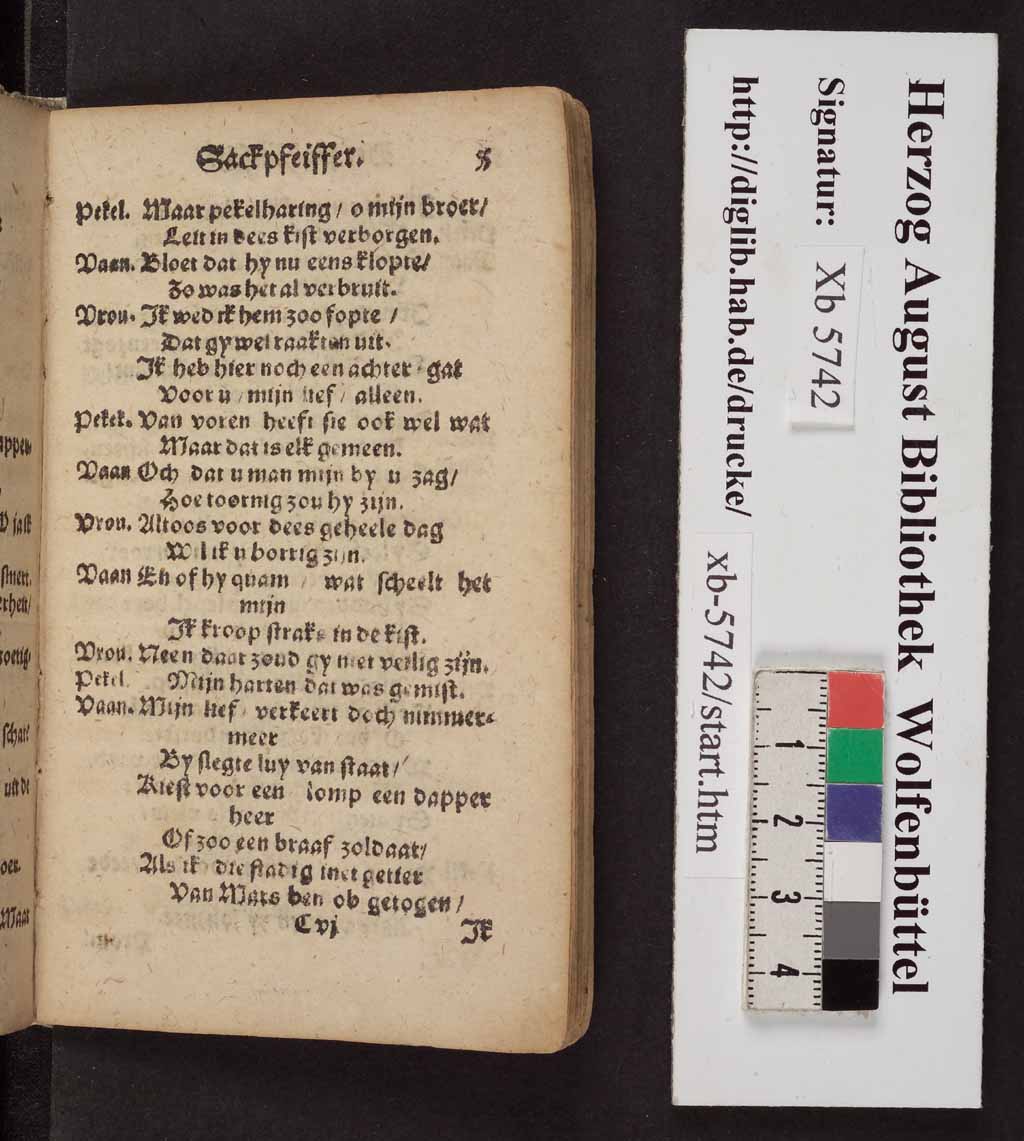 Sackpfeiffer. 5
Pekel. Maar pekelharing / o mijn broer/
Leit in dees kist verborgen.
Vaan. Bloet dat hy nu eens klopte/
Zo was het al verbruit.
Vrou. Ik wed ik hem zoo fopte /
Dat gy wel raakten uit.
Ik heb hier noch een achter-gat
Voor u / mijn lief / alleen.
Pekel. Van voren heeft sie ook wel wat
Maar dat is elk gemeen.
Vaan Och dat u man mijn by u zag/
Hoe toornig zou hy zijn.
Vrou. Altoos voor dees geheele dag
Wil ik u borrig zijn.
Vaan En of hy quam / wat scheelt het
mijn
Ik kroop straks in de kist.
Vrou. Neen daar zoud gy niet veilig zijn.
Pekel. Mijn harten dat was gemist.
Vaan. Mijn lief / verkeert doch nimmer-
meer
By slegte luy van staat/
Kiest voor een lomp een dapper
heer
Of zoo een braaf zoldaat/
Als ik die stadig met getier
Van Mars ben ob getogen /
C vj Ik
ppen
D jast
smert.
erheit/
schat!
uit de
oer.
Maar
Herzog August Bibliothek Wolfenbüttel
Signatur: Xb 5742
http://diglib.hab.de/drucke/
xb-5742/start.htm
1 2 3 4